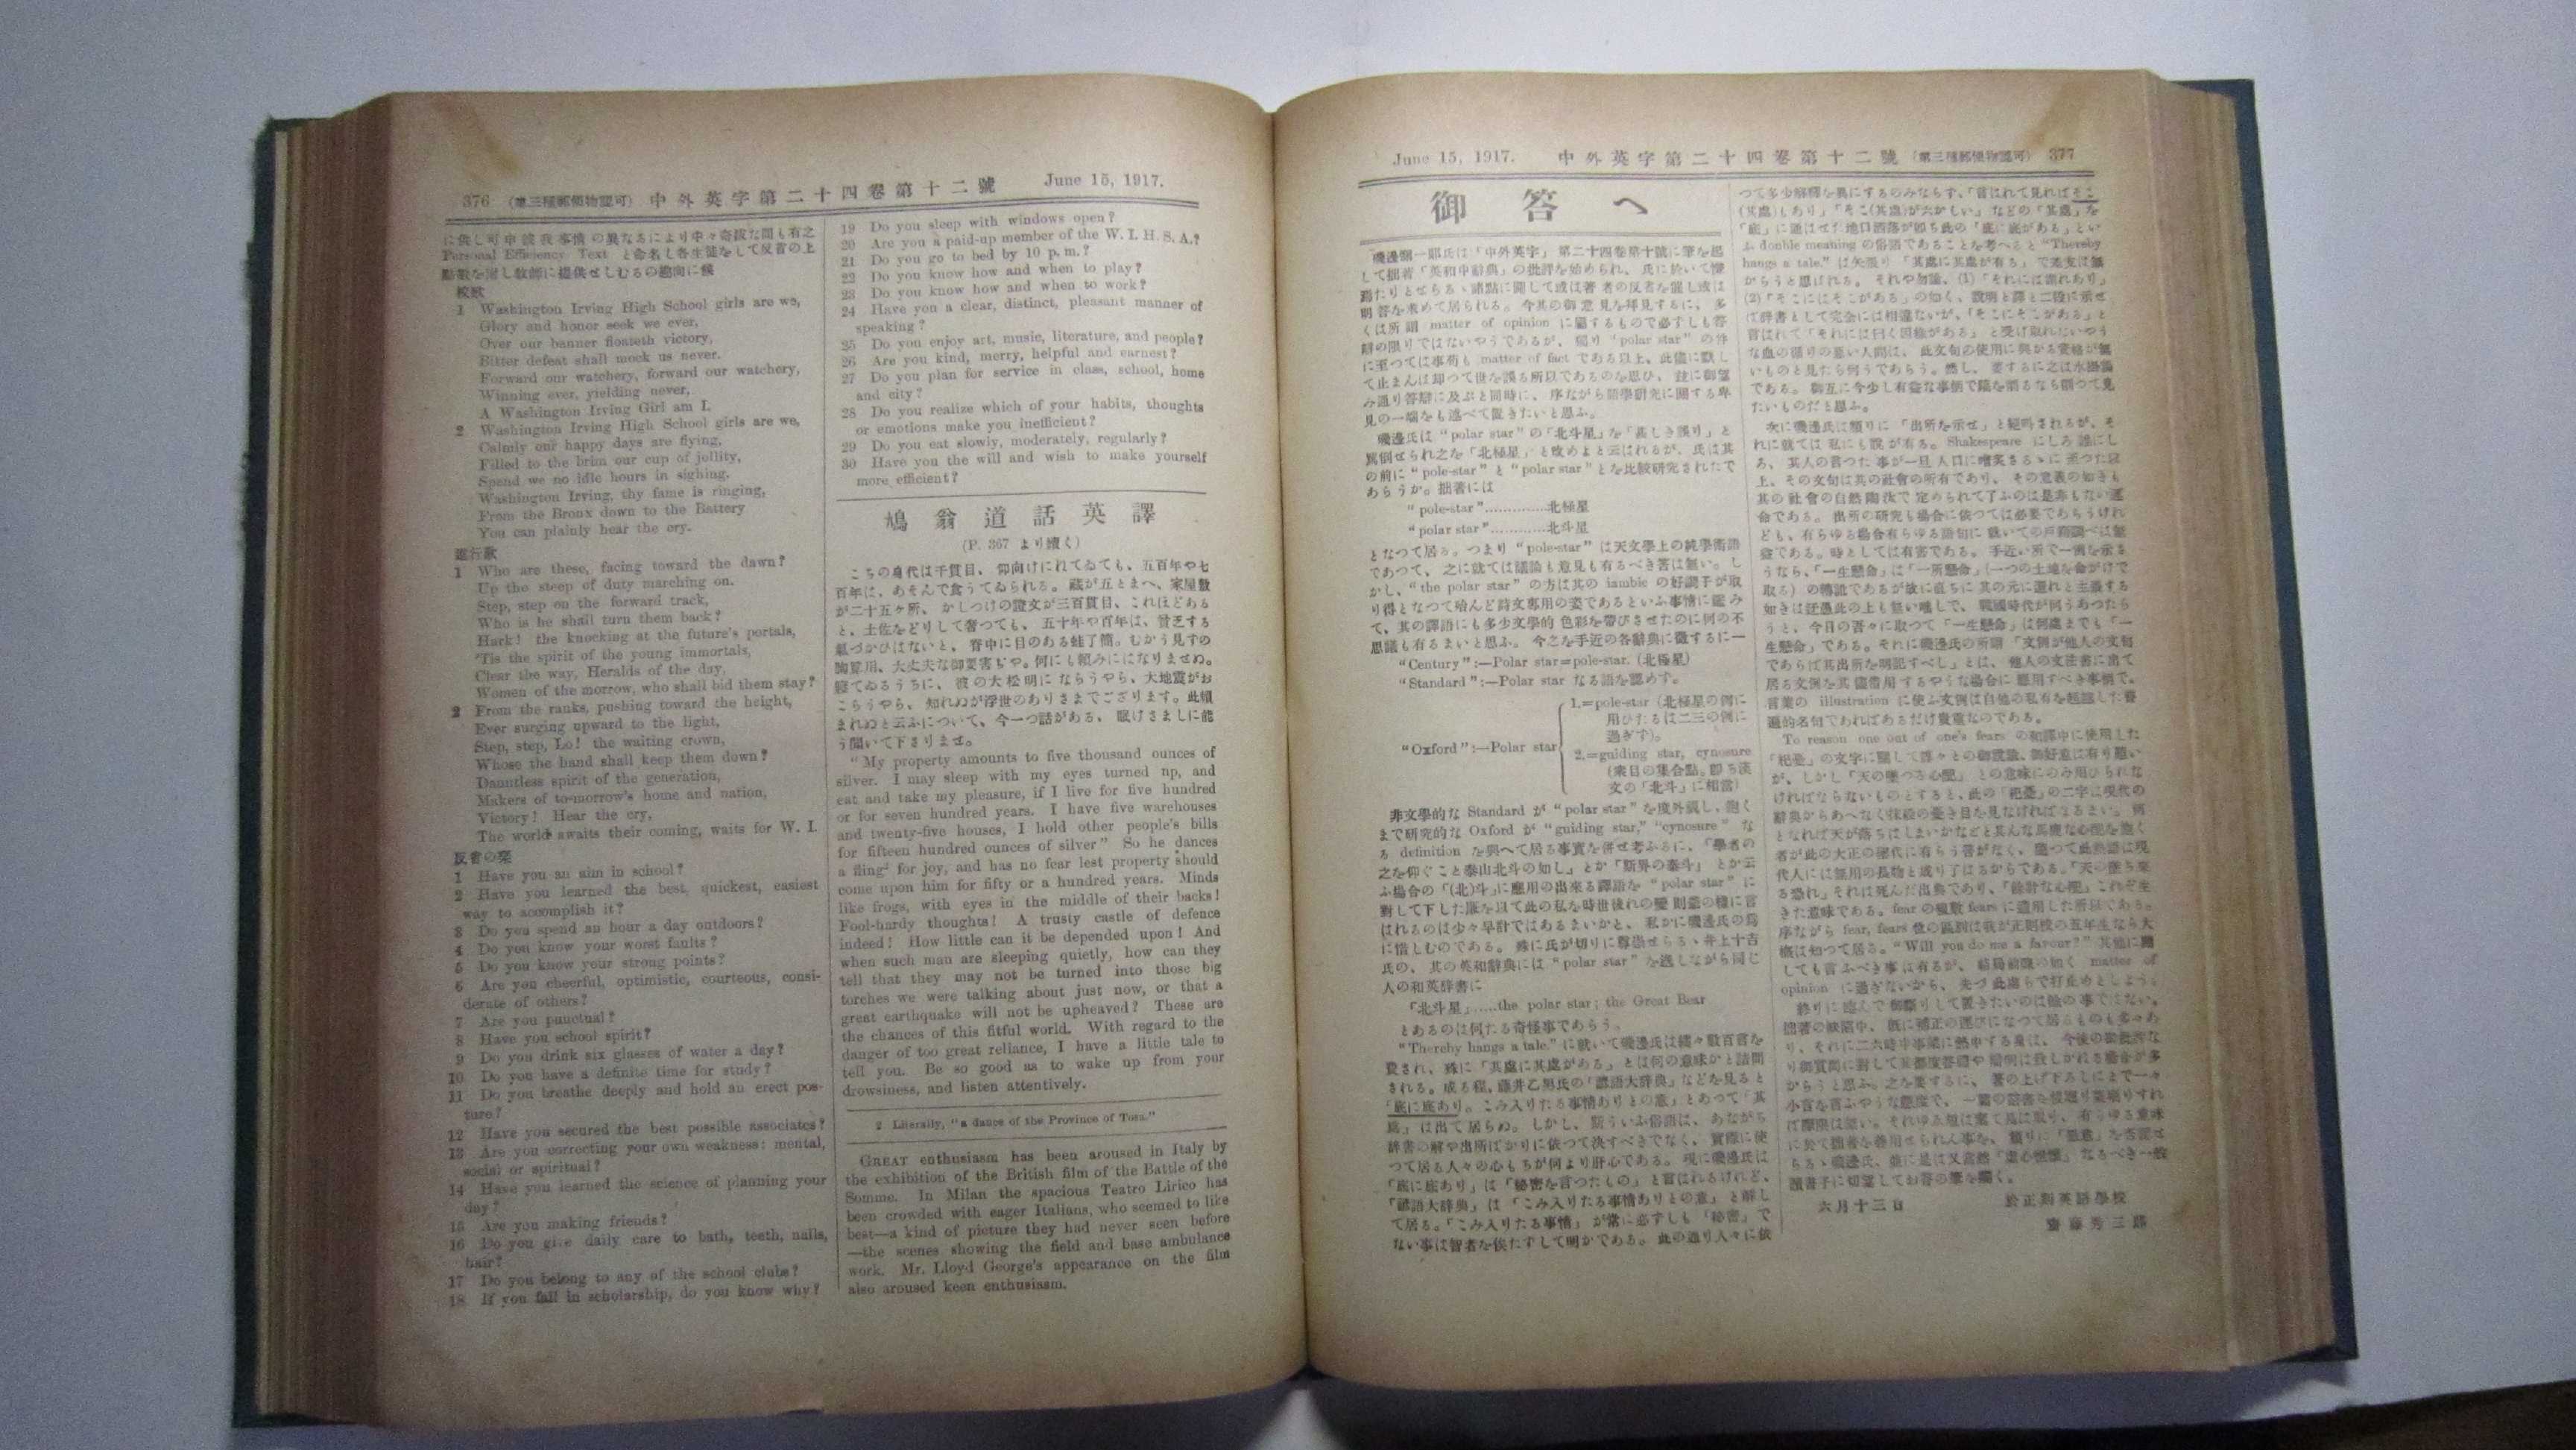 376 (第三種郵便物認可) 中外英字第二十四卷第十二號 June 15, 1917.
に供し可申彼我事情の異なるにより中々奇拔な問も有之
Personal Efficiency Text と命名し各生徒をして反省の上
點數を附し教師に提供せしむるの趣向に候
校歌
1 Washington Irving High School girls are we,
Glory and honor seek we ever,
Over our banner floateth victory,
Bitter defeat shall mock us never.
Forward our watchery, forward our watchery,
Winning ever, yielding never,
A Washington Irving Girl am I.
2 Washington Irving High School girls are we,
Calmly our happy days are flying,
Filled to the brim our cup of jollity,
Spend we no idle hours in sighing,
Washington Irving, thy fame is ringing,
From the Bronx down to the Battery
You can plainly hear the cry.
進行歌
1 Who are these, facing toward the dawn?
Up the steep of duty marching on.
Step, step on the forward track,
Who is he shall turn them back?
Hark! the knocking at the future's portals,
'Tis the spirit of the young immortals,
Clear the way, Heralds of the day,
Women of the morrow, who shall bid them stay?
2 From the ranks, pushing toward the height,
Ever surging upward to the light,
Step, step, Lo! the waiting crown,
Whose the hand shall keep them down?
Dauntless spirit of the generation,
Makers of to-morrow's home and nation,
Victory! Hear the cry,
The world awaits their coming, waits for W. I.
反省の栞
1 Have you an aim in school?
2 Have you learned the best, quickest, easiest
way to accomplish it?
3 Do you spend an hour a day outdoors?
4 Do you know your worst faults?
5 Do you know your strong points?
6 Are you cheerful, optimistic, courteous, consi-
derate of others?
7 Are you punctual?
8 Have you school spirit?
9 Do you drink six glasses of water a day?
10 Do you have a definite time for study?
11 Do you breathe deeply and hold an erect pos-
ture?
12 Have you secured the best possible associates?
13 Are you correcting your own weakness: mental,
social or spiritual?
14 Have you learned the science of planning your
day?
15 Are you making friends?
16 Do you give daily care to bath, teeth, nails,
hair?
17 Do you belong to any of the school clubs?
18 If you fail in scholarship, do you know why?
19 Do you sleep with windows open?
20 Are you a paid-up member of the W. I. H. S. A.?
21 Do you go to bed by 10 p. m.?
22 Do you know how and when to play?
23 Do you know how and when to work?
24 Have you a clear, distinct, pleasant manner of
speaking?
25 Do you enjoy art, music, literature, and people?
26 Are you kind, merry, helpful and earnest?
27 Do you plan for service in class, school, home
and city?
28 Do you realize which of your habits, thoughts
or emotions make you inefficient?
29 Do you eat slowly, moderately, regularly?
30 Have you the will and wish to make yourself
more efficient?
鳩翁道話英譯
(P. 367 より續く)
こちの身代は千貫目、仰向けにれてゐても、五百年や七
百年は、あそんで食うてゐられる。藏が五とまへ、家屋敷
が二十五ヶ所、かしつけの證文が三百貫目、これほどある
と、土佐をどりして奢つても、五十年や百年は、貧乏する
氣づかひはないと、脊中に目のある蛙了簡。むかう見ずの
胸算用、大丈夫な御要害ぢや。何にも頼みにはなりませぬ。
寢てゐるうちに、彼の大松明にならうやら、大地震がお
こらうやら、知れぬが浮世のありさまでござります。此頼
まれぬと云ふについて、今一つ話がある、眠けさましに能
う聞いて下さりませ。
"My property amounts to five thousand ounces of
silver. I may sleep with my eyes turned up, and
eat and take my pleasure, if I live for five hundred
or for seven hundred years. I have five warehouses
and twenty-five houses, I hold other people's bills
for fifteen hundred ounces of silver" So he dances
a fling² for joy, and has no fear lest property should
come upon him for fifty or a hundred years. Minds
like frogs, with eyes in the middle of their backs!
Fool-hardy thoughts! A trusty castle of defence
indeed! How little can it be depended upon! And
when such man are sleeping quietly, how can they
tell that they may not be turned into those big
torches we were talking about just now, or that a
great earthquake will not be upheaved? These are
the chances of this fitful world. With regard to the
danger of too great reliance, I have a little tale to
tell you. Be so good as to wake up from your
drowsiness, and listen attentively.
2 Literally, "a dance of the Province of Tosa."
GREAT enthusiasm has been aroused in Italy by
the exhibition of the British film of the Battle of the
Somme. In Milan the spacious Teatro Lirico has
been crowded with eager Italians, who seemed to like
best—a kind of picture they had never seen before
—the scenes showing the field and base ambulance
work. Mr. Lloyd George's appearance on the film
also aroused keen enthusiasm.
June 15, 1917. 中外英字第二十四卷第十二號 (第三種郵便物認可) 377
御答へ
磯邊彌一郎氏は「中外英字」第二十四卷第十號に筆を起
して拙著「英和中辭典」の批評を始められ、氏に於いて慊
焉たりとせらるゝ諸點に關して或は著者の反省を促し或は
明答を求めて居られる。今其の御意見を拜見するに、多
くは所謂 matter of opinion に屬するもので必ずしも答
辯の限りではないやうであるが、獨り "polar star" の件
に至つては事苟も matter of fact である以上、此儘に默し
て止まんは却つて世を誤る所以であるのを思ひ、玆に御望
み通り答辯に及ぶと同時に、序ながら語學研究に關する卑
見の一端をも述べて置きたいと思ふ。
磯邊氏は "polar star" の「北斗星」を「甚しき誤り」と
罵倒せられ之を「北極星」と改めよと云はれるが、氏は其
の前に "pole-star" と "polar star" とを比較研究されたで
あらうか。拙著には
"pole-star"............北極星
"polar star"............北斗星
となつて居る。つまり "pole-star" は天文學上の純學術語
であつて、之に就ては議論も意見も有るべき筈は無い。し
かし、"the polar star" の方は其の iambic の好調子が取
り得となつて殆んど詩文專用の姿であるといふ事情に鑑み
て、其の譯語にも多少文學的色彩を帶びさせたのに何の不
思議も有るまいと思ふ。今之を手近の各辭典に徵するに—
"Century":—Polar star=pole-star. (北極星)
"Standard":—Polar star なる語を認めず。
"Oxford":—Polar star
1.=pole-star (北極星の例に
用ひたるは二三の例に
過ぎず)。
2.=guiding star, cynosure
(衆目の集合點。卽ち漢
文の「北斗」に相當)
非文學的な Standard が "polar star" を度外視し、飽く
まで研究的な Oxford が "guiding star," "cynosure" な
る definition を與へて居る事實を併せ考ふるに、「學者の
之を仰ぐこと泰山北斗の如し」とか「斯界の泰斗」とか云
ふ場合の「(北)斗」に應用の出來る譯語を "polar star" に
對して下した廉を以て此の私を時世後れの變則儘の樣に言
はれるのは少々早計ではあるまいかと、私かに磯邊氏の爲
に惜しむのである。殊に氏が切りに尊崇せらるゝ井上十吉
氏の、其の英和辭典には "polar star" を逸しながら同じ
人の和英辭書に
「北斗星」.....the polar star; the Great Bear
とあるのは何たる奇怪事であらう。
"Thereby hangs a tale." に就いて磯邊氏は縷々數百言を
費され、殊に「其處に其處がある」とは何の意味かと詰問
される。成る程、藤井乙男氏の「諺語大辭典」などを見ると
「底に底あり。こみ入りたる事情ありとの意」とあつて「其
處」は出て居らぬ。しかし、斯ういふ俗語は、あながち
辭書の解や出所ばかりに依つて決すべきでなく、實際に使
つて居る人々の心もちが何より肝心である。現に磯邊氏は
「底に底あり」は「秘密を言つたもの」と言はれるけれど、
「諺語大辭典」は「こみ入りたる事情ありとの意」と解し
て居る。「こみ入りたる事情」が常に必ずしも「秘密」で
ない事は智者を俟たずして明かである。此の通り人々に依
つて多少解釋を異にするのみならず、「言はれて見ればそこ
(其處)もあり」「そこ(其處)が六かしい」などの「其處」を
「底」に通はせた地口洒落が卽ち此の「底に底がある」とい
ふ double meaning の俗諺であることを考へると "Thereby
hangs a tale." は矢張り「其處に其處が有る」で差支は無
からうと思はれる。それや勿論、(1)「それには謂れあり」
(2)「そこにはそこがある」の如く、說明と譯と二段に示せ
ば辭書として完全には相違ないが、「そこにそこがある」と
言はれて「それには曰く因緣がある」と受け取れないやう
な血の循りの惡い人間は、此文句の使用に與かる資格が無
いものと見たら何うであらう。然し、要するに之は水掛論
である。御互に今少し有益な事柄で鎬を削るなら削つて見
たいものだと思ふ。
次に磯邊氏は頻りに「出所を示せ」と絕叫されるが、そ
れに就ては私にも說が有る。Shakespeare にしろ誰にし
ろ、其人の言つた事が一旦人口に噲炙さるゝに至つた以
上、その文句は其の社會の所有であり、その意義の如きも
其の社會の自然陶汰で定められて了ふのは是非もない運
命である。出所の研究も場合に依つては必要であらうけれ
ども、有らゆる場合有らゆる語句に就いての戸籍調べは無
益である。時としては有害である。手近い所で一例を示さ
うなら、「一生懸命」は「一所懸命」(一つの土地を命がけで
取る)の轉訛であるが故に直ちに其の元に還れと主張する
如きは迂愚此の上も無い噺しで、戰國時代が何うあつたら
うと、今日の吾々に取つて「一生懸命」は何處までも「一
生懸命」である。それに磯邊氏の所謂「文例が他人の文句
であらば其出所を明記すべし」とは、他人の文法書に出て
居る文例を其儘借用するやうな場合に應用すべき事柄で、
言葉の illustration に使ふ文例は自他の私有を超越した普
遍的名句であればあるだけ貴重なのである。
To reason one out of one's fears の和譯中に使用した
「杞憂」の文字に關して
が、しかし「天の墜つる心配」との意味にのみ用ひられな
ければならないものとすると、此の「杞憂」の二字は現代の
辭典からあへなく抹殺の憂き目を見なければなるまい。何
となれば天が落ちはしまいかなどと其んな馬鹿な心配を抱く
者が此の大正の御代に有らう筈がなく、隨つて此熟語は現
代人には無用の長物と成り了はるからである。「天の墜ち來
る恐れ」それは死んだ出典であり、「餘計な心配」これぞ生
きた意味である。fear の複數 fears に適用した所以である。
序ながら fear, fears 位の區別は我が正則校の五年生なら大
槪は知つて居る。"Will you do me a favour?" 其他に關
しても言ふべき事は有るが、結局前陳の如く matter of
opinion に過ぎないから、先づ此處らで打止めとしよう。
終りに臨んで御斷りして置きたいのは他の事ではない。
拙著の缺陷中、旣に補正の運びになつて居るものも多々あ
り、それに二六時中事業に熱中する身は、今後の御批評な
り御質問に對して一々
からうと思ふ。之を要するに、箸の上げ下ろしにまで一々
小言を言ふやうな態度で、
六月十三日 於正則英語學校
齋藤秀三郎